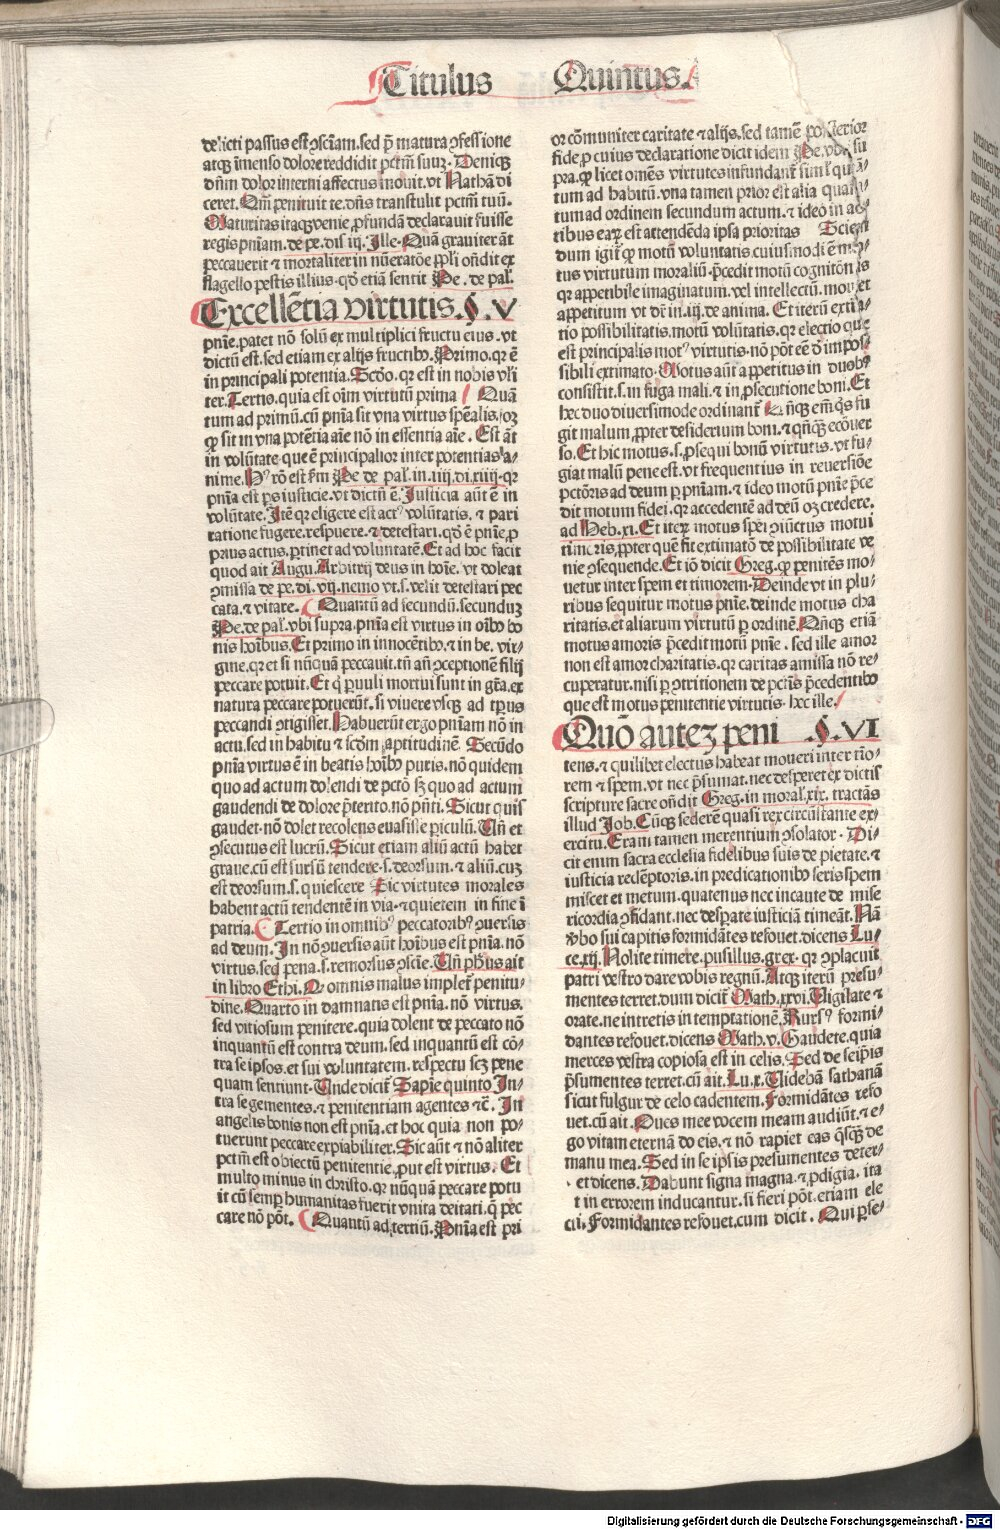 Titulus Quintus.
delicti passus est ꝯsciam. sed p̄ matura ꝯfessione
atqꝫ īmenso dolore reddidit pctm̄ suuꝫ. Deniqꝫ
dn̄m dolor interni affectus mouit. vt Nathā di
ceret. Qm̄ penituit te. dn̄s transtulit pctm̄ tuū.
Maturitas itaqꝫ venie ꝓfundā declarauit fuisse
regis pn̄iam. de pe. dis. iij. Ille. Quā grauiter āt
peccauerit ⁊ mortaliter in nūeratōe ppl̓i on̄dit ex
flagello pestis illius. qd̓ etiā sentit Pe. de pal̓.
Excellētia virtutis. §. V
pn̄ie. patet nō solū ex multiplici fructu eius. vt
dictū est. sed etiam ex alijs fructibꝰ. Primo. qꝛ ē
in principali potentia. Scd̓o. qꝛ est in nobis vl̓i
ter. Tertio. quia est oīm virtutū prima Quā
tum ad primū. cū pn̄ia sit vna virtus spēalis. oꝫ
ꝙ sit in vna potētia aīe nō in essentia aīe. Est āt
in volūtate que ē principalior inter potentias a⸗
nime. Hꝰ rō est fm̄ Pe de pal̓. in. iiij. di. xiiij. qꝛ
pn̄ia est ps iusticie. vt dictū ē. Justicia aūt ē in
volūtate. Itē qꝛ eligere est actꝰ volūtatis. ⁊ pari
ratione fugere. respuere. ⁊ detestari. qd̓ ē pn̄ie. ꝓ
prius actus. ptinet ad voluntatē. Et ad hoc facit
quod ait Augu. Arbitrij deus in hoīe. vt doleat
ꝯmissa de pe. di. vij. nemo vt. s. velit detestari pec
cata. ⁊ vitare. Quantū ad secundū. secunduꝫ
Pe. de pal̓. vbi supra. pn̄ia est virtus in oībꝰ bo
nis hoībus. Et primo in innocētibꝰ. ⁊ in be. vir⸗
gine. qꝛ et si nūquā peccauit. tn̄ an̄ ꝯceptionē filij
peccare potuit. Et q̇ paruuli mortui sunt in gr̄a. ex
natura peccare potuerūt. si viuere vsqꝫ ad tp̄us
peccandi ꝯtigisset. Habuerūt ergo pn̄iam nō in
actu. sed in habitu ⁊ scd̓m aptitudinē. Secūdo
pn̄ia virtus ē in beatis hoībꝰ puris. nō quidem
quo ad actum dolendi de pctō sꝫ quo ad actum
gaudendi de dolore p̄terito. nō pn̄ti. Sicut quis
gaudet. nō dolet recolens euasisse ꝑiculū. Tn̄ et
ꝯsecutus est lucrū. Sicut etiam aliū actū habet
graue. cū est sursū tendere. s. deorsum. ⁊ aliū. cuꝫ
est deorsum. s. quiescere Sic virtutes morales
habent actū tendentē in via. ⁊ quietem in fine ī
patria. Tertio in omnibꝰ peccatoribꝰ ꝯuersis
ad deum. In nō ꝯuersis aūt hoībus est pn̄ia. nō
virtus. sed pena. s. remorsus ꝯscie. Tn̄ ph̄us ait
in libro Ethi. Q omnis malus implet̄ penitu⸗
dine. Quarto in damnatis est pn̄ia. nō virtus.
sed vitiosum penitere. quia dolent de peccato nō
inquantū est contra deum. sed inquantū est cō⸗
tra seipsos. et sui voluntatem. respectu scꝫ pene
quam sentiunt. Unde dicit̄ Sapīe quinto In⸗
tra se gementes. ⁊ penitentiam agentes ⁊c̄. In
angelis bonis non est pn̄ia. et hoc quia non po⸗
tuerunt peccare expiabiliter. Sic aūt ⁊ nō aliter
pctm̄ est obiectū penitentie. put est virtus. Et
multo minus in christo. qꝛ nūquā peccare potu
it cū semp humanitas fuerit vnita deitati. q̄ pec
care nō pōt. Quantū ad tertiū. Pn̄ia est pri
or cōmuniter caritate ⁊ alijs. sed tamē posterior
fide. ꝓ cuius declaratione dicit idem Pe. vbi su
pra. ꝙ licet omēs virtutes infundant̄ simul quā⸗
tum ad habitū. vna tamen prior est alia quan⸗
tum ad ordinem secundum actum. ⁊ ideo in ac⸗
tibus eaꝝ est attendēda ipsa prioritas Sciēn
dum igit̄ ꝙ motū voluntatis. cuiusmodi ē mo⸗
tus virtutum moraliū. p̄cedit motū cognitōnis
qꝛ appetibile imaginatum. vel intellectū. mouet
appetitum vt dr̄ in. iij. de anima. Et iterū extia⸗
tio possibilitatis. motū volūtatis. qꝛ electio que
est principalis motꝰ virtutis. nō pōt eē de impos⸗
sibili extimato. Motus aūt appetitus in duobꝰ
consistit. s. in fuga mali. ⁊ in ꝓsecutione boni. Et
hec duo diuersimode ordinant̄ Qn̄qꝫ em̄ q̇s fu
git malum. ꝓpter desiderium boni. ⁊ qn̄qꝫ ecōuer
so. Et hic motus. s. ꝓsequi bonū virtutis. vt fu⸗
giat malū pene est. vt frequentius in reuersiōe
pctōris ad deum ꝑ pn̄iam. ⁊ ideo motū pn̄ie p̄ce
dit motum fidei. qꝛ accedentē ad deū oꝫ credere.
ad Heb. xi. Et iteꝝ motus spei ꝯiunctus motui
timoris. ꝓpter quē fit extimatō de possibilitate ve
nie ꝯsequende. Et iō dicit Greg. ꝙ penitēs mo⸗
uetur inter spem et timorem. Deinde vt in plu⸗
ribus sequitur motus pn̄ie. deinde motus cha
ritatis. et aliarum virtutū ꝑ ordinē. Qn̄qꝫ etiā
motus amoris p̄cedit motū pn̄ie. sed ille amor
non est amor charitatis. qꝛ caritas amissa nō re⸗
cuperatur. nisi ꝑ ꝯtritionem de pctis p̄cedentibꝰ
que est motus penitentie virtutis. hec ille.
Quō autez peni §. VI
tens. ⁊ quilibet electus habeat moueri inter tiō⸗
rem ⁊ spem. vt nec p̄sumat. nec desperet ex dictis
scripture sacre on̄dit Greg. in moral̓. xix. tractās
illud Job. Cūqꝫ sederē quasi rex circūstante ex⸗
ercitu. Eram tamen merentium ꝯsolator. Di⸗
cit enim sacra ecclesia fidelibus suis de pietate. ⁊
iusticia redēptoris. in predicationibꝰ seris spem
miscet et metum. quatenus nec incaute de mise
ricordia ꝯfidant. nec desꝑate iusticiā timeāt. Nā
v̓bo sui capitis formidātes refouet. dicens Lu⸗
ce. xij. Nolite timere. pusillus. grex. qꝛ ꝯplacuit
patri vestro dare vobis regnū. Atqꝫ iterū presu⸗
mentes terret. dum dicit̄ Math. xxvi. Vigilate ⁊
orate. ne intretis in temptationē. Rursꝰ formi⸗
dantes refouet. dicens Math. v. Gaudete. quia
merces vestra copiosa est in celis. Sed de seip̄is
p̄sumentes terret. cū ait. Lu. x. Videbā sathanā
sicut fulgur de celo cadentem. Formidātes refo
uet. cū ait. Oues mee vocem meam audiūt. ⁊ e⸗
go vitam eternā do eis. ⁊ nō rapiet eas q̇sqꝫ de
manu mea. Sed in se ipsis presumentes deter⸗
et dicens. Dabunt signa magna. ⁊ ꝓdigia. ita
t in errorem inducantur. si fieri pōt. etiam ele
cti. Formidantes refouet. cum dicit. Qui ꝑse⸗
Digitalisierung gefördert durch die Deutsche Forschungsgemeinschaft - DFG